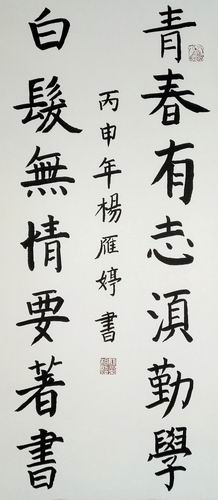 青春有志須勤學
白髮無情要著書
丙申年楊雁婷書